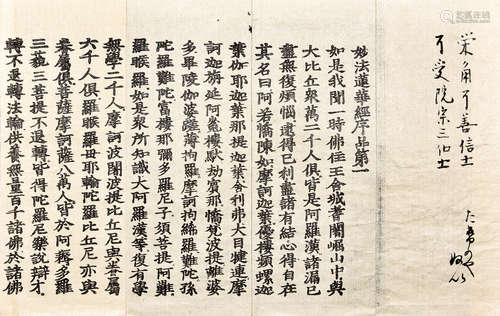 榮角了善信士
了受院宗三仙士
妙法蓮華經序品第一
如是我聞一時佛住王舍城耆闍崛山中與
大比丘衆萬二千人俱皆是阿羅漢諸漏已
盡無復煩惱逮得己利盡諸有結心得自在
其名曰阿若憍陳如摩訶迦葉優樓頻螺迦
葉伽耶迦葉那提迦葉舍利弗大目犍連摩
訶迦旃延阿㝹樓馱劫賓那憍梵波提離婆
多畢陵伽婆蹉薄拘羅摩訶拘絺羅難陀孫
陀羅難陀富樓那彌多羅尼子須菩提阿難
羅睺羅如是衆所知識大阿羅漢等復有學
無學二千人摩訶波闍波提比丘尼與眷屬
六千人俱羅睺羅母耶輸陀羅比丘尼亦與
眷屬俱菩薩摩訶薩八萬人皆於阿耨多羅
三藐三菩提不退轉皆得陀羅尼樂說辯才
轉不退轉法輪供養無量百千諸佛於諸佛